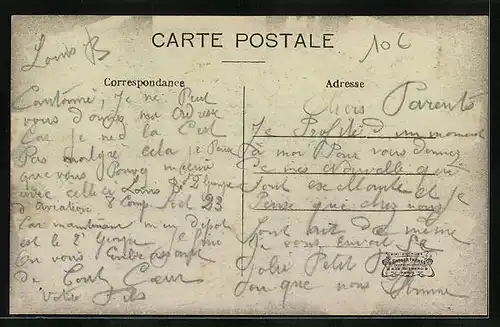 Louis B
CARTE POSTALE
106
Correspondance
Adresse
Chers Parents
Je Profite d un moment
à moi Pour vous donner
de mes Nouvelle qui
sont exellante et je
Pense que chez vous
tout ait de même
Je vous envoit Se
Jolie Petit
que nous
Cantonné, Je ne Peut
vous donner mon Adresse
Car je ne la C'est
Pas malgré cela je Pense
que vous Pouvez m'écrire
avec celle ci Louis B 2e Groupe
d'Aviation 8 Comp. Sect 23
Car maintenant m un dépot
est le 2e Groupe Je fini
En vous Embrassant
De Tout Cœur
Votre Fils